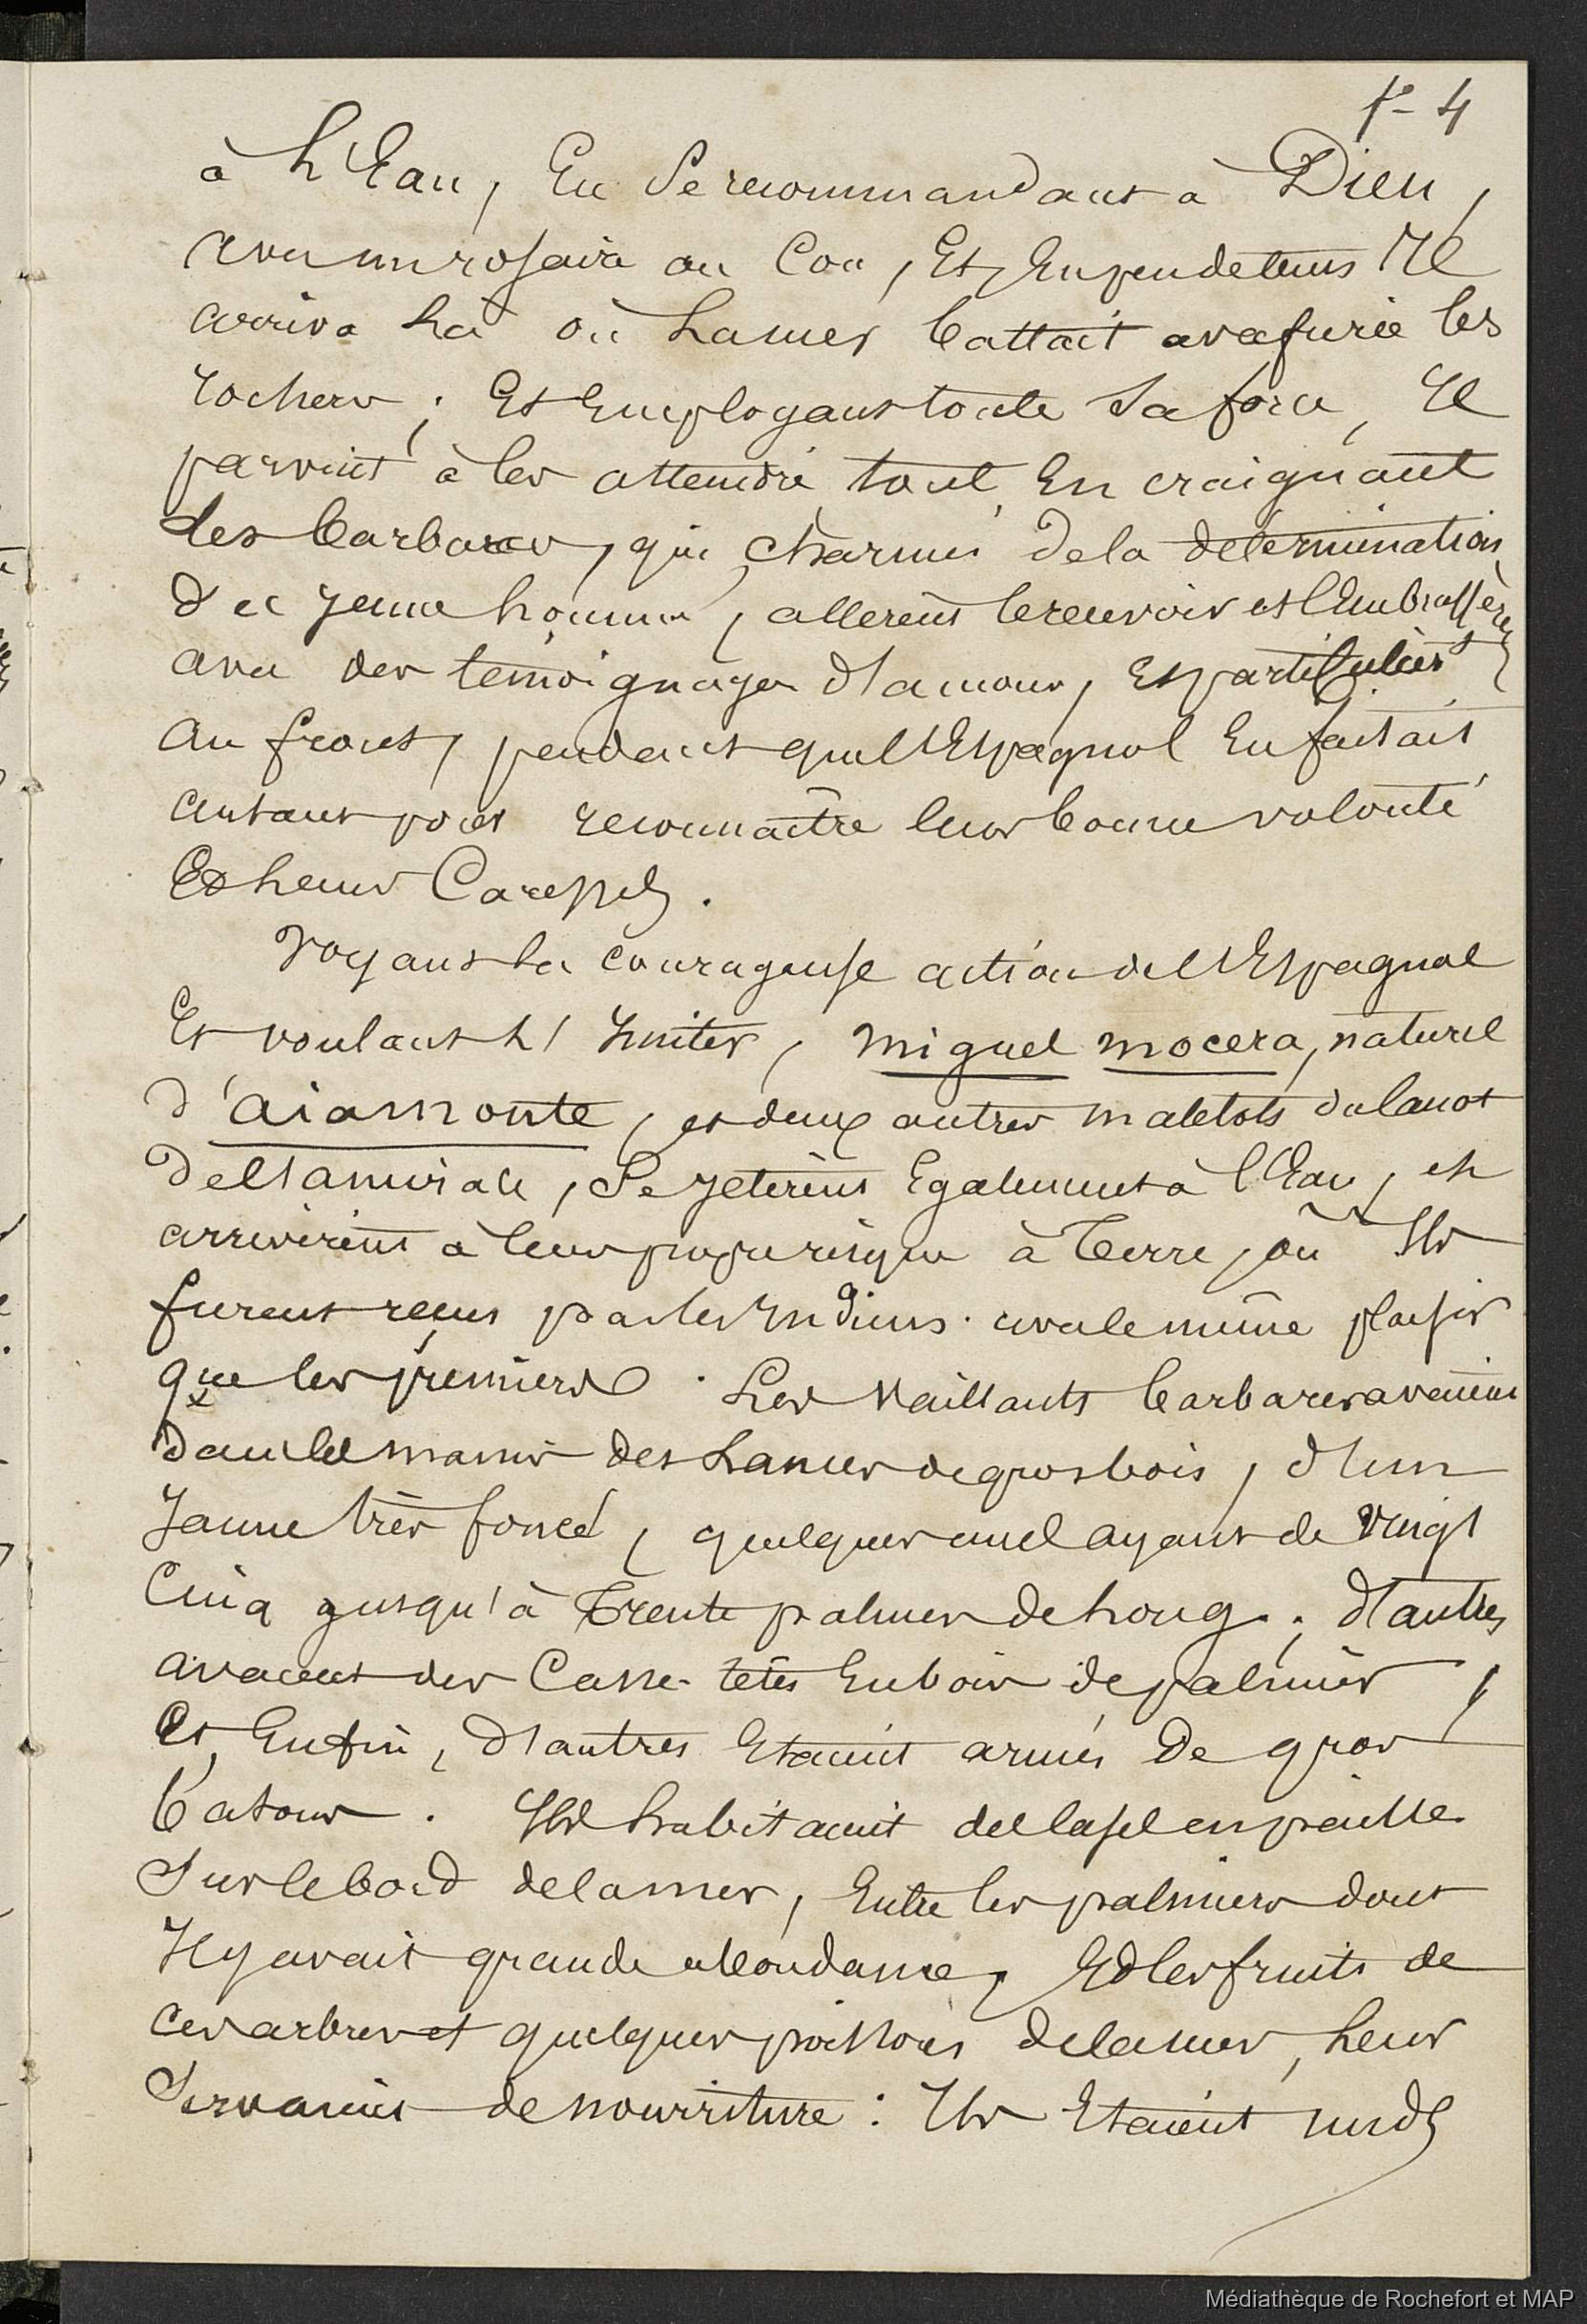 fo 4
à L'Eau, En Se recommandant à Dieu,
avec un rosaire au Cou, Et, En peu de tems Il
arriva Là où La mer battait avec furie les
rochers ; Et Employant toute Sa force, Il
parvint à les atteindre, tout En craignant
les barbares, qui, charmés de la détermination
de ce jeune homme, allerent le recevoir et l'Embrassèrent
avec des temoignages d'amour, Et particulièrt
au front, pendant que l'Espagnol En faisait
autant pour reconnaître leur bonne volonté
Et Leurs Caresses.
Voyant La courageuse action de l'Espagnol
Et voulant L'Imiter, Miguel Mocera, naturel
d'Aiamonte, et deux autres matelots du canot
de l'amirale, Se jeterent Egalement à l'Eau, et
arrivèrent à leur propre risque à Terre, où Ils
furent reçus par les Indiens avec le même plaisir
que les premiers. Les Vaillants barbares avaient
dans les mains des Lances de gros bois, d'un
Jaune très foncé, quelques unes ayant de Vingt
Cinq jusqu'à Trente palmes de Long ; d'autres
avaient des Casse-têtes En bois de palmier,
Et, Enfin, d'autres Etaient armés De gros
batons. Ils habitaient des cases en paille
Sur le bord de la mer, Entre les palmiers dont
Il y avait grande abondance, Et les fruits de
ces arbres et quelques poissons de la mer, Leur
Servaient de nourriture : Ils Etaient nuds
Médiathèque de Rochefort et MAP